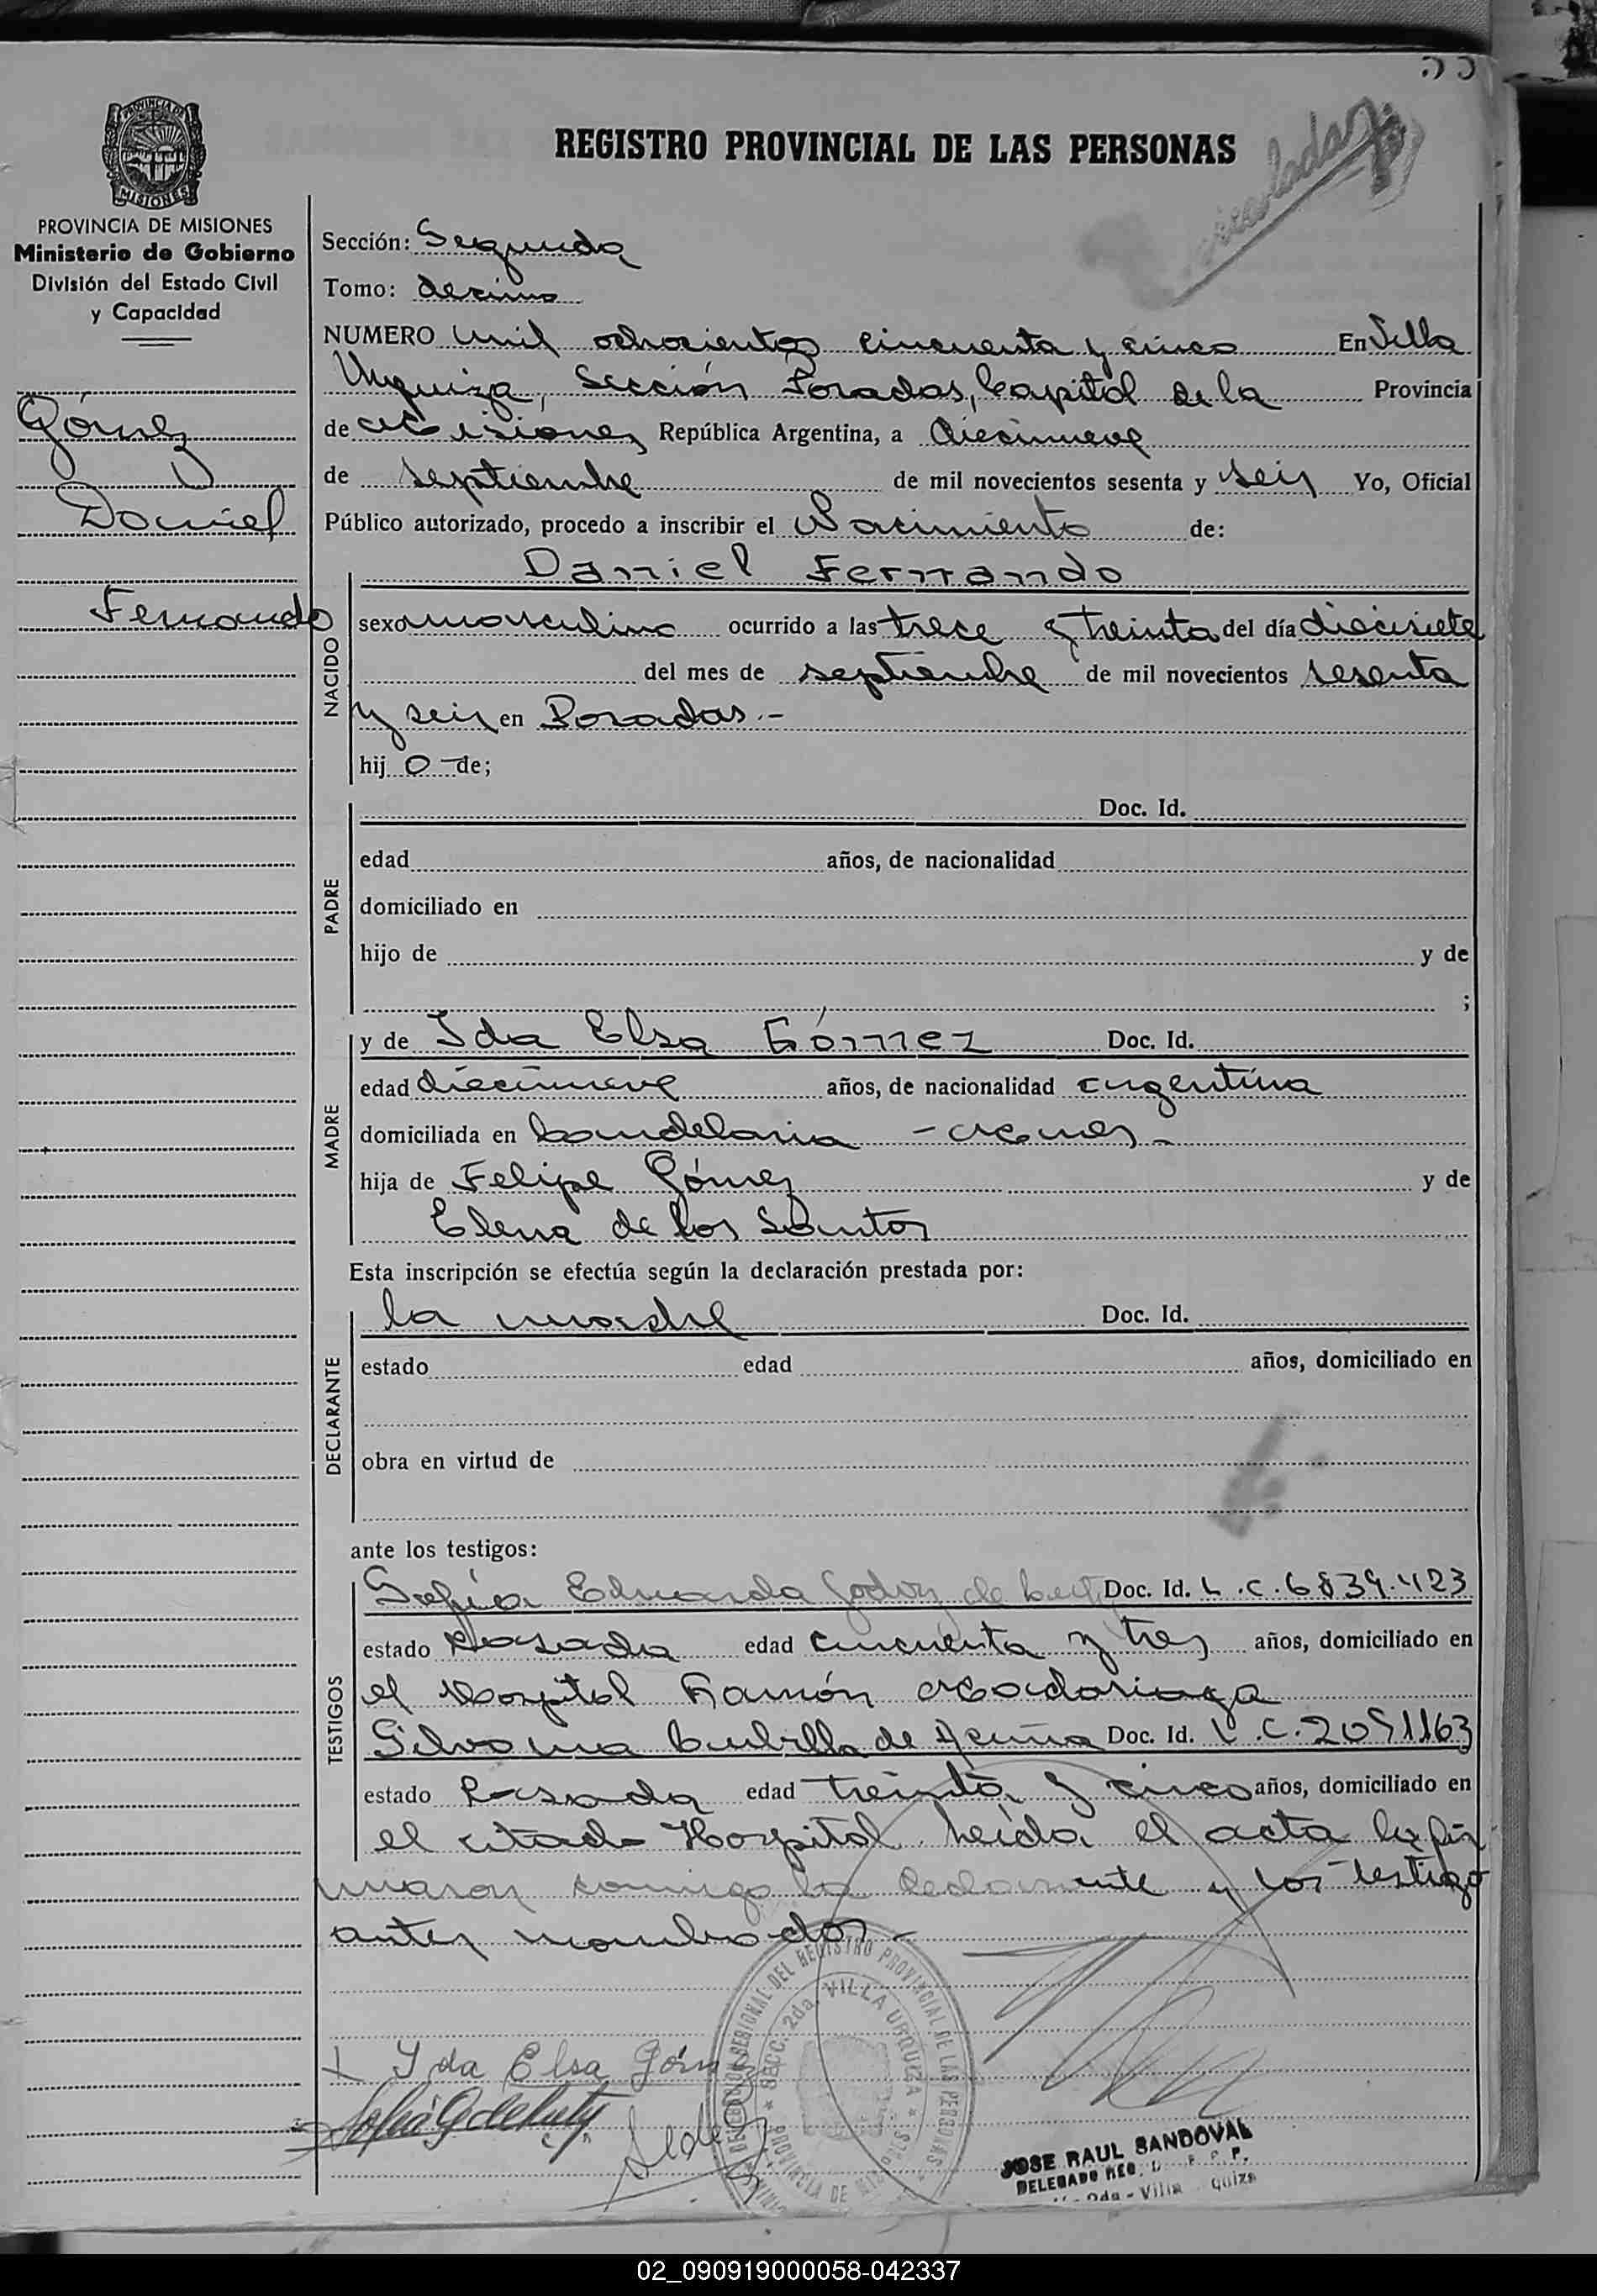 REGISTRO PROVINCIAL DE LAS PERSONAS
PROVINCIA DE
MISIONES
PROVINCIA DE MISIONES
Ministerio de Gobierno
División del Estado Civil
y Capacidad
Gómez
Daniel
Fernando
Sección: Segunda
Tomo: decimo
NUMERO mil ochocientos cincuenta y cinco En Villa
Urquiza, Sección Posadas, Capital de la Provincia
de Misiones República Argentina, a diecinueve
de septiembre de mil novecientos sesenta y seis Yo, Oficial
Público autorizado, procedo a inscribir el Nacimiento de:
NACIDO
Daniel Fernando
sexo masculino ocurrido a las trece y treinta del día diecisiete
del mes de septiembre de mil novecientos sesenta
y seis en Posadas.-
hij o de;
PADRE
Doc. Id.
edad años, de nacionalidad
domiciliado en
hijo de y de
;
MADRE
y de Ida Elsa Gómez Doc. Id.
edad diecinueve años, de nacionalidad argentina
domiciliada en Candelaria - Mnes.
hija de Felipe Gómez y de
Elena de los Santos
Esta inscripción se efectúa según la declaración prestada por:
DECLARANTE
la madre Doc. Id.
estado edad años, domiciliado en
obra en virtud de
ante los testigos:
TESTIGOS
Sofía Eduarda Godoy de Doc. Id. L.C. 6839.423
estado casada edad cincuenta y tres años, domiciliado en
el Hospital Ramón Madariaga
Silvana Cubilla de Acuña Doc. Id. L.C. 2051163
estado casada edad treinta y cinco años, domiciliado en
el citado Hospital. Leída el acta la fir
maron conmigo la declarante y los testigos
antes nombrados.-
DELEGACION REGIONAL DEL REGISTRO PROVINCIAL DE LAS PERSONAS
SECC. 2da. VILLA URQUIZA
PROVINCIA DE MISIONES
x Ida Elsa Góm
JOSE RAUL SANDOVAL
DELEGADO REG.
2da - Villa quiza
02_090919000058-042337